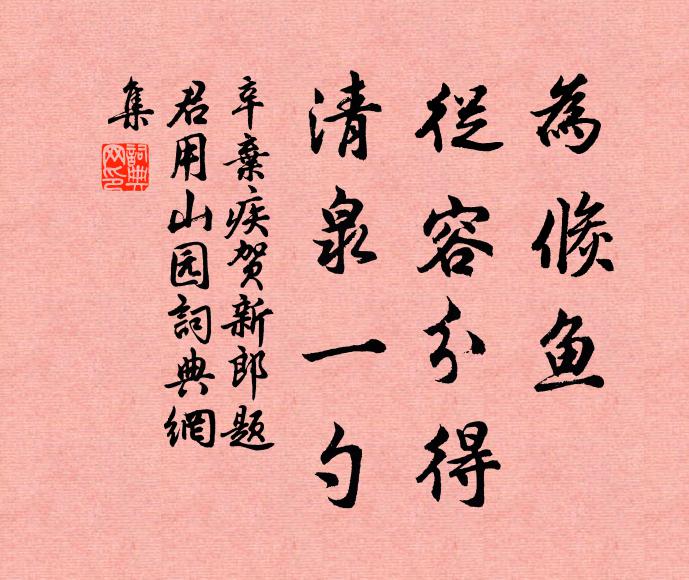 為倏魚
從容分得
清泉一勺
辛棄疾賀新郎题
君用山园詞典網
集
詞典
网印